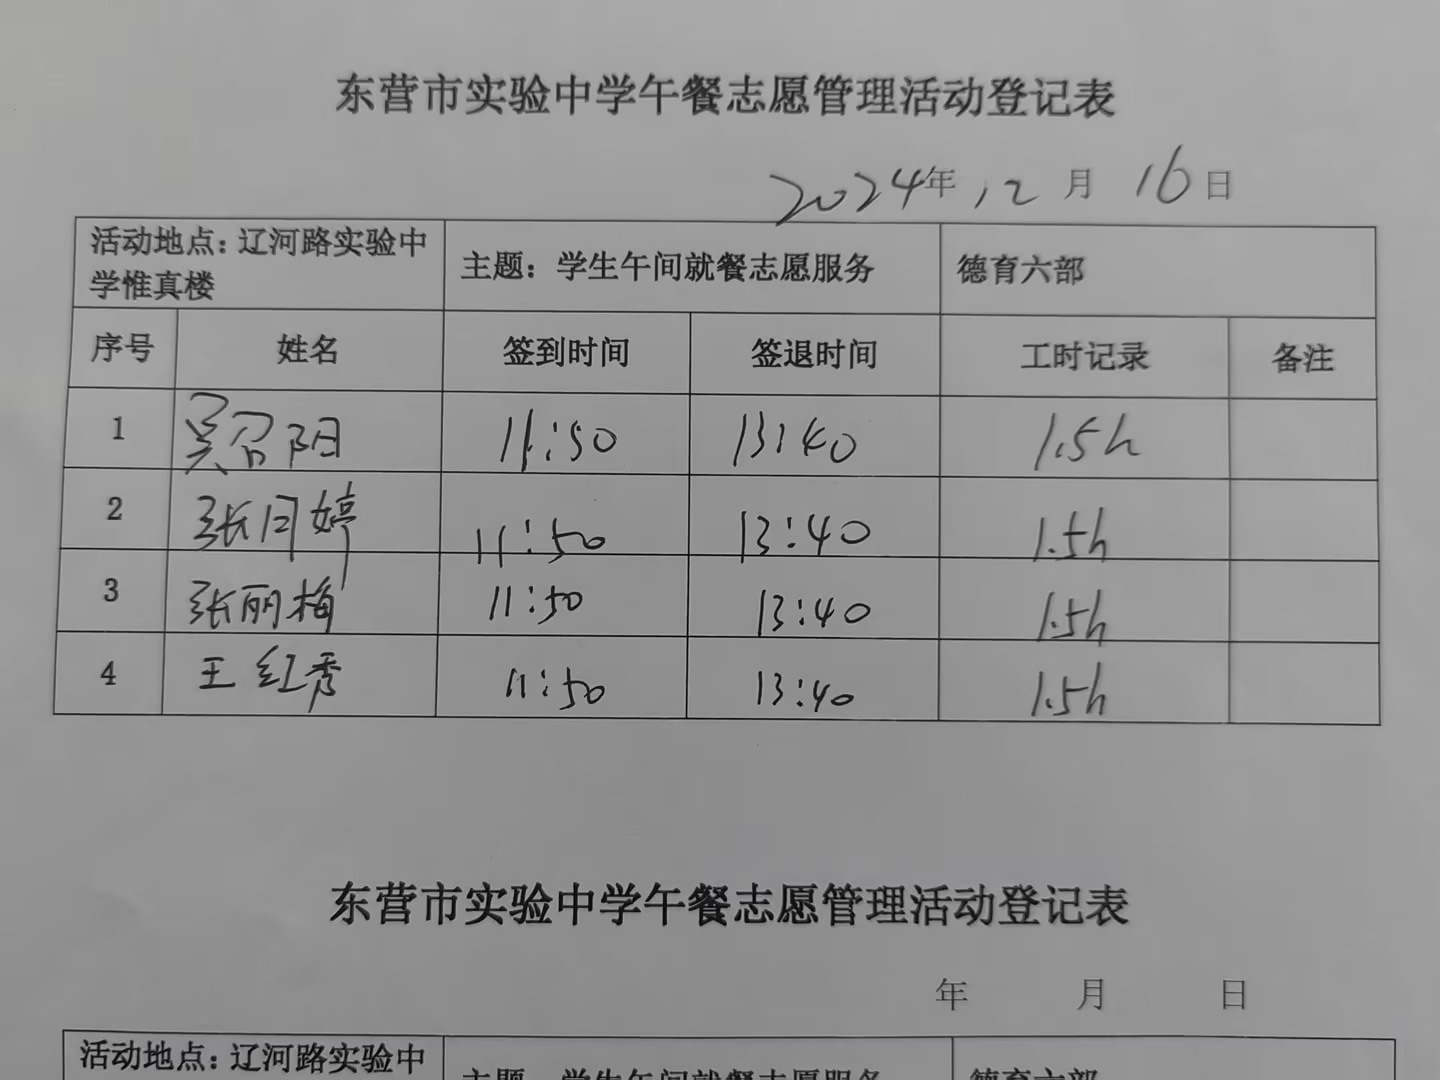 东营市实验中学午餐志愿管理活动登记表
2024年 12月 16日
活动地点：辽河路实验中学惟真楼 主题：学生午间就餐志愿服务 德育六部
序号 姓名 签到时间 签退时间 工时记录 备注
1 吴召阳 11:50 13:40 1.5h
2 张月婷 11:50 13:40 1.5h
3 张丽梅 11:50 13:40 1.5h
4 王红秀 11:50 13:40 1.5h
东营市实验中学午餐志愿管理活动登记表
年 月 日
活动地点：辽河路实验中 主题：学生午间就餐志愿服务 德育六部